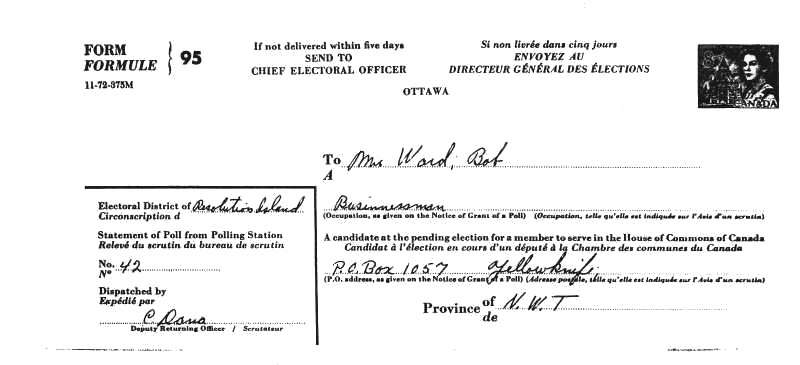 FORM
FORMULE
95
11-72-375M
If not delivered within five days
SEND TO
CHIEF ELECTORAL OFFICER
Si non livrée dans cinq jours
ENVOYEZ AU
DIRECTEUR GÉNÉRAL DES ÉLECTIONS
OTTAWA
CANADA
To Mr. Ward, Bob
A
Electoral District of Resolution Island
Circonscription d
Statement of Poll from Polling Station
Relevé du scrutin du bureau de scrutin
No. 42
N°
Dispatched by
Expédié par
C. Dana
Deputy Returning Officer / Scrutateur
Businnessman
(Occupation, as given on the Notice of Grant of a Poll) (Occupation, telle qu'elle est indiquée sur l'Avis d'un scrutin)
A candidate at the pending election for a member to serve in the House of Commons of Canada
Candidat à l'élection en cours d'un député à la Chambre des communes du Canada
P.O. Box 1057 Yellowknife,
(P.O. address, as given on the Notice of Grant of a Poll) (Adresse postale, telle qu'elle est indiquée sur l'Avis d'un scrutin)
Province of N.W.T
de